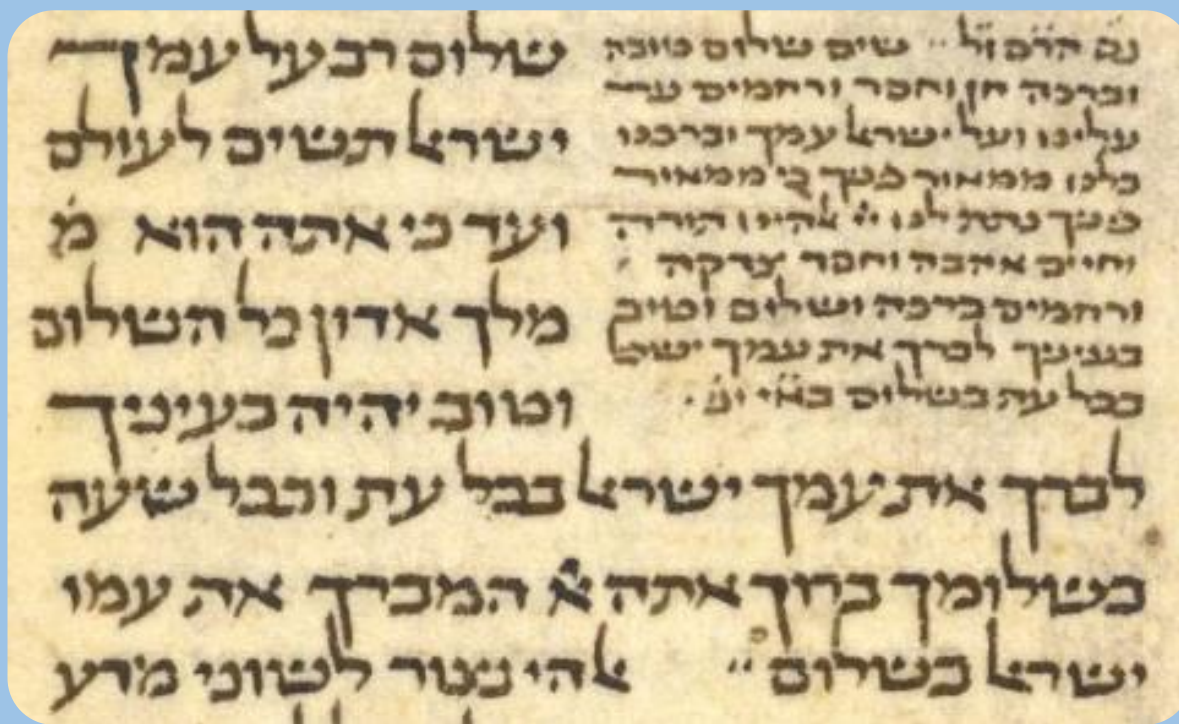 הר״ם ז״ל ·· שים שלום טובה
וברכה חן וחסד ורחמים ע
עלינו ועל ישראל עמך וברכנו
כלנו ממאור פניך כי ממאור
פניך נתת לנו אלהינו תורה
וחיים אהבה וחסד צדקה
ורחמים ברכה ושלום וטוב
בעיניך לברך את עמך
בכל עת בשלום בא״י
שלום רב על עמך
ישראל תשים לעולם
ועד כי אתה הוא מ׳
מלך אדון כל השלום
וטוב יהיה בעיניך
לברך את עמך ישראל בכל עת ובכל שעה
בשלומך ברוך אתה המברך את עמו
ישראל בשלום ·· אלהי נצור לשוני מרע